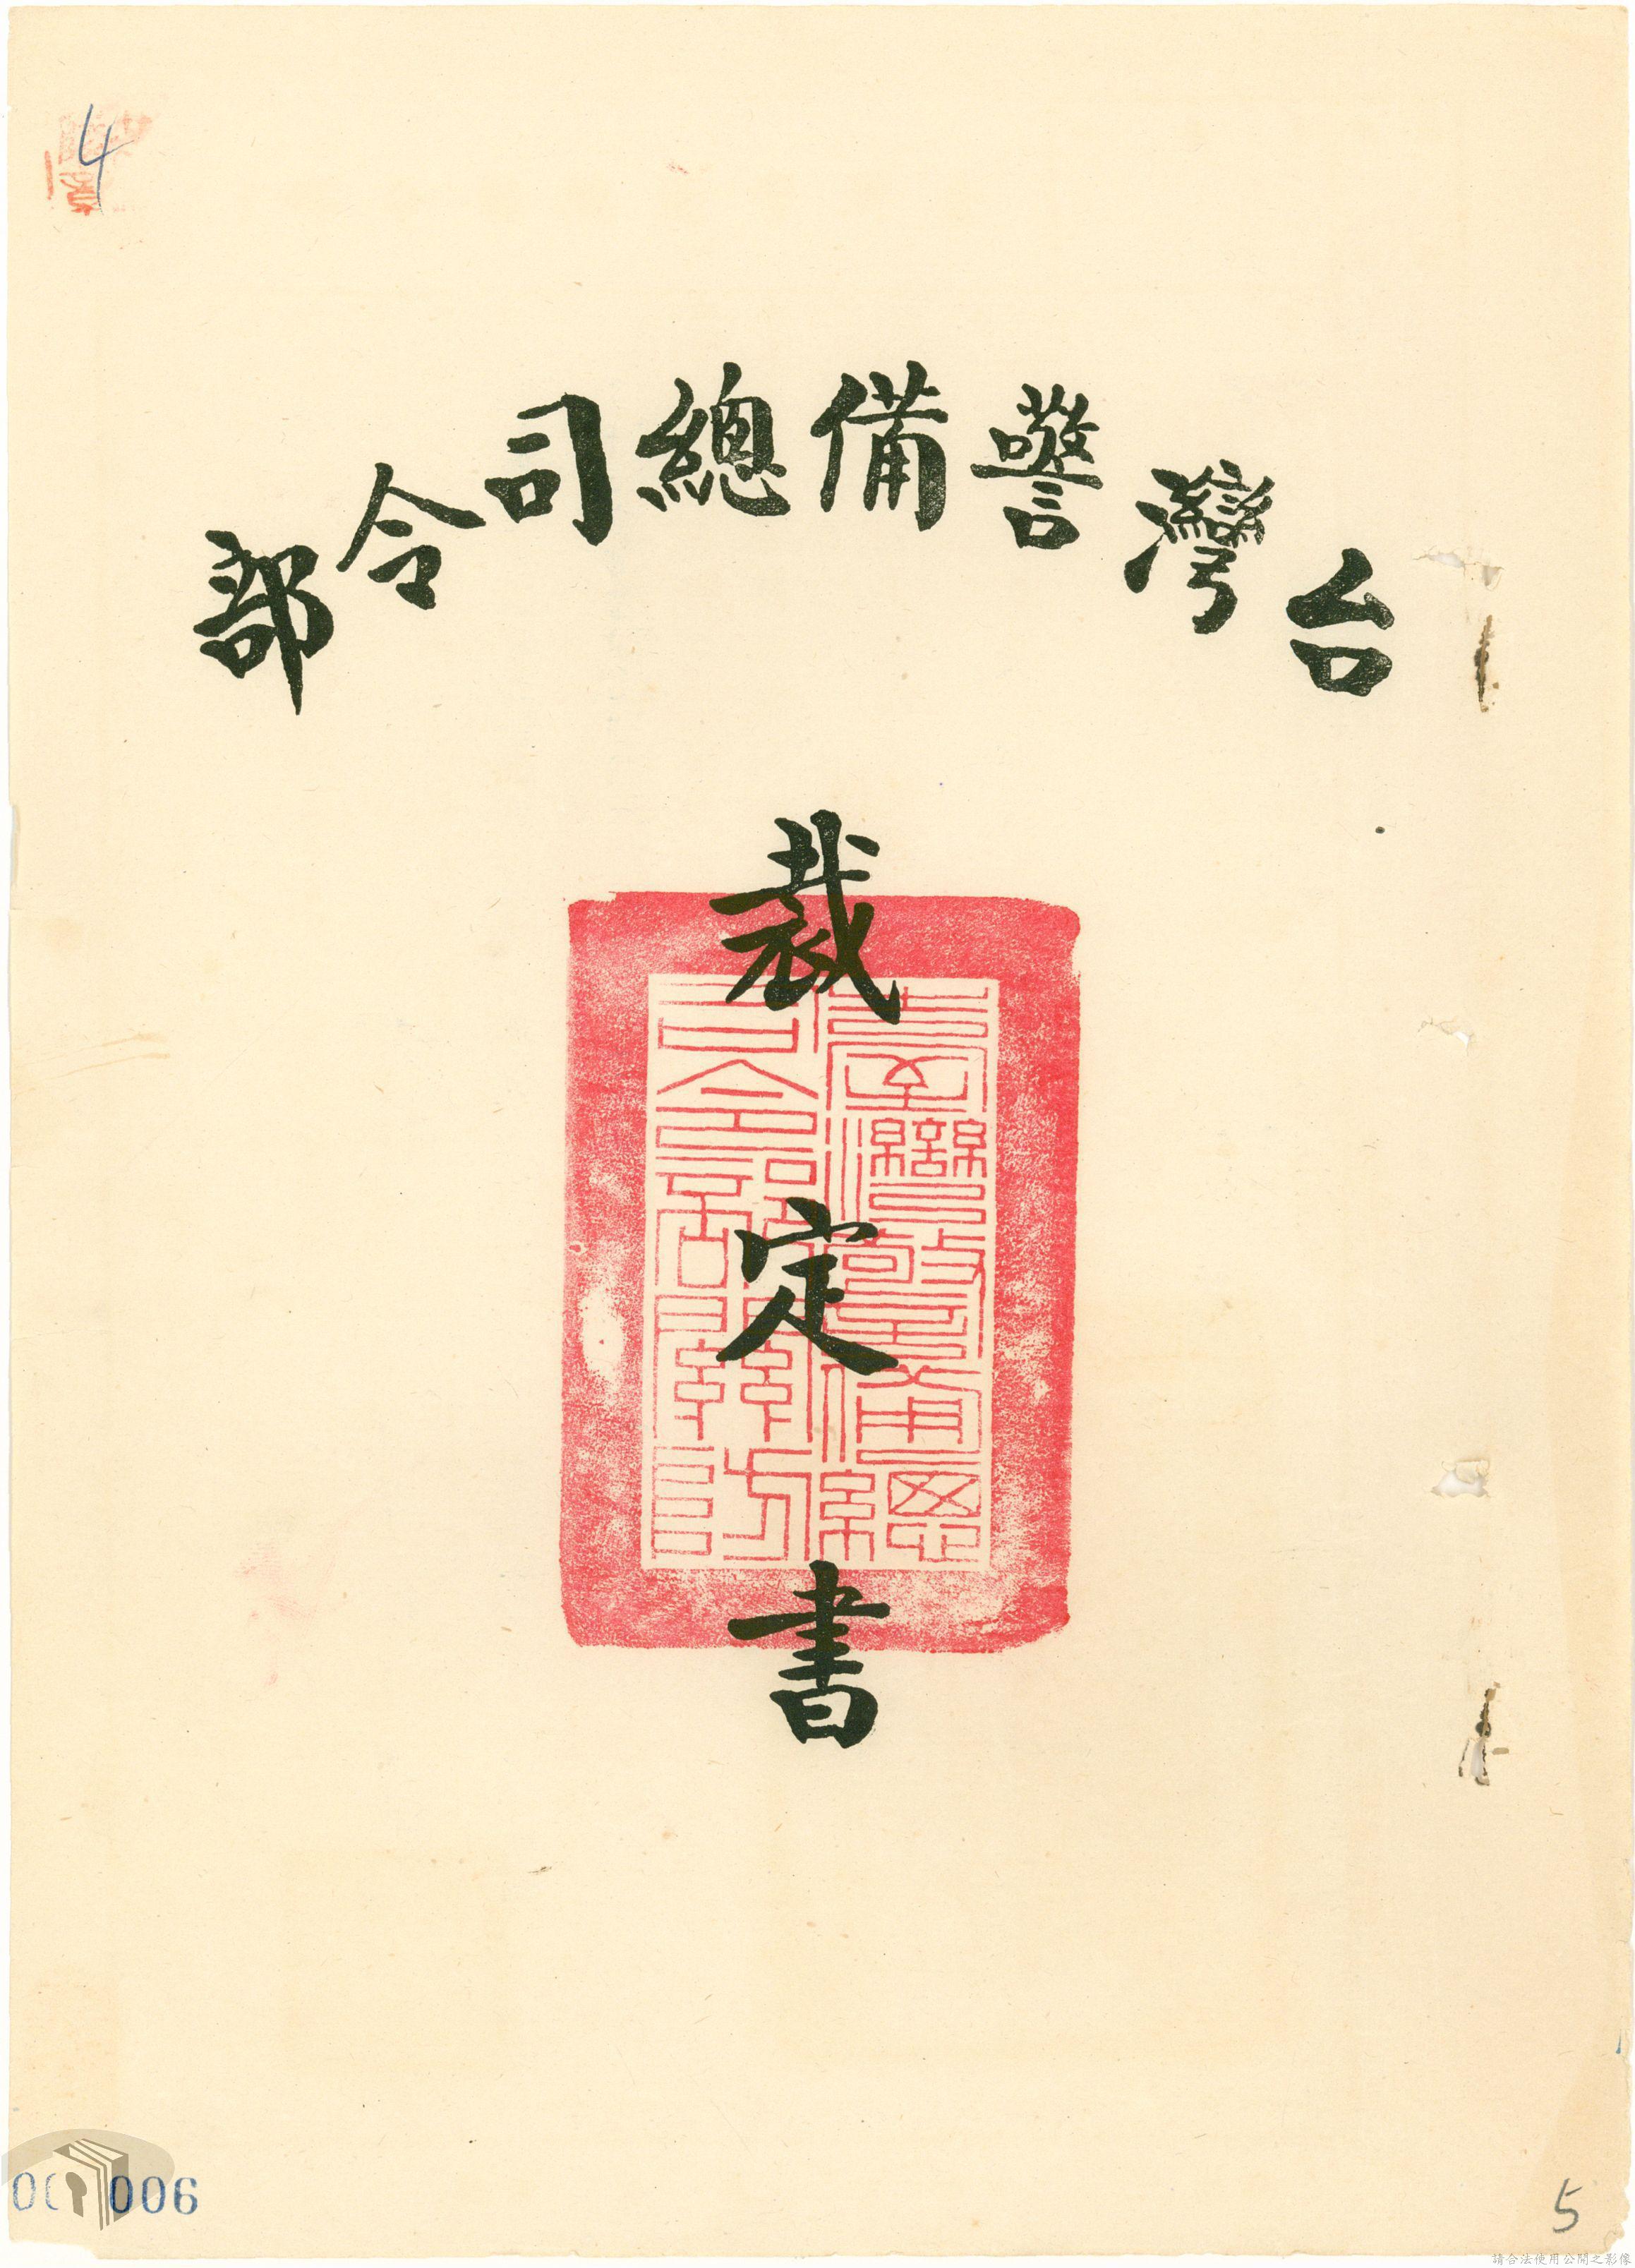 4
台灣警備總司令部
裁定書
臺灣警備總
司令部關防
006
5
請合法使用公開之影像